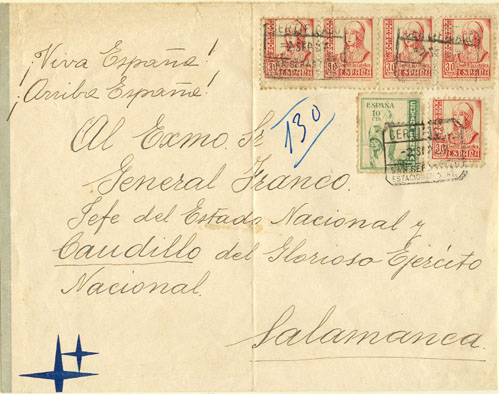 ¡Viva España!
¡Arriba España!
CERTIFICADO
2 SEP 37
ESPAÑA
10
CTS
30
30
30
30
30
ESPAÑA
ESPAÑA
ESPAÑA
ESPAÑA
130
Al Exmo. Sr
General Franco.
Jefe del Estado Nacional y
Caudillo del Glorioso Ejército
Nacional.
Salamanca.